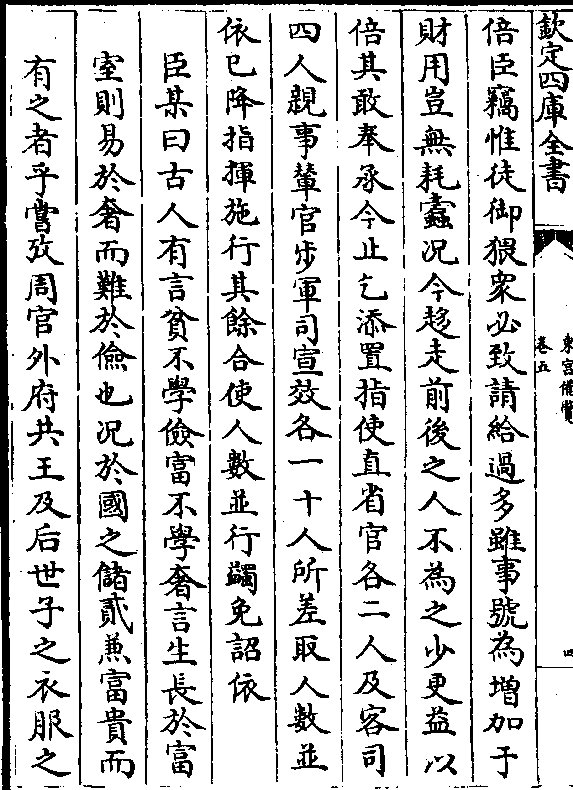 欽定四庫全書
東宮備覽
卷五
四
倍臣竊惟徒御猥衆必致請給過多雖事號為增加于
財用豈無耗蠹况今趍走前後之人不為之少更益以
倍其敢奉承今止乞添置指使直省官各二人及客司
四人親事輦官步軍司宣效各一十人所差取人數並
依已降指揮施行其餘合使人數並行蠲免詔依
臣某曰古人有言貧不學儉富不學奢言生長於富
室則易於奢而難於儉也况於國之儲貳兼富貴而
有之者乎嘗攷周官外府共王及后世子之衣服之